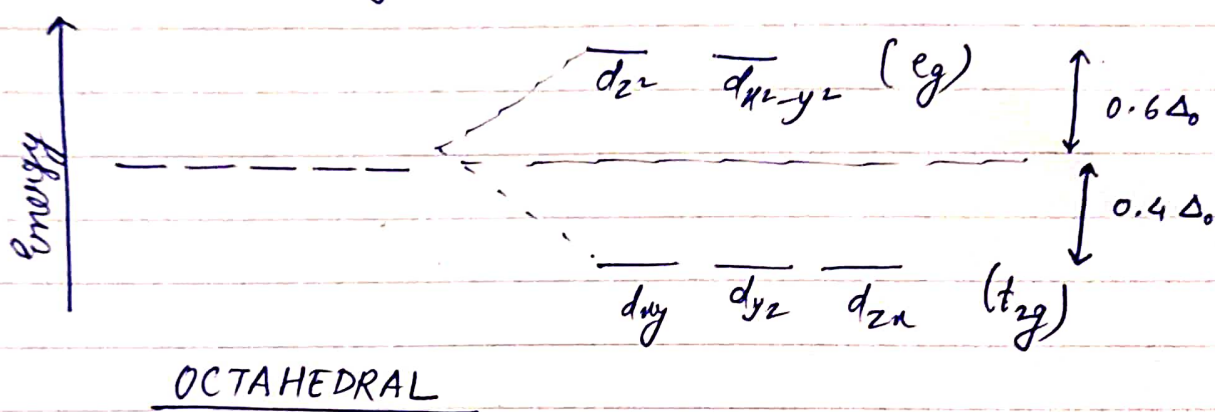 Energy
d_z² d_x²-y² (eg)
0.6Δ₀
0.4Δ₀
dxy dyz dzx (t₂g)
OCTAHEDRAL